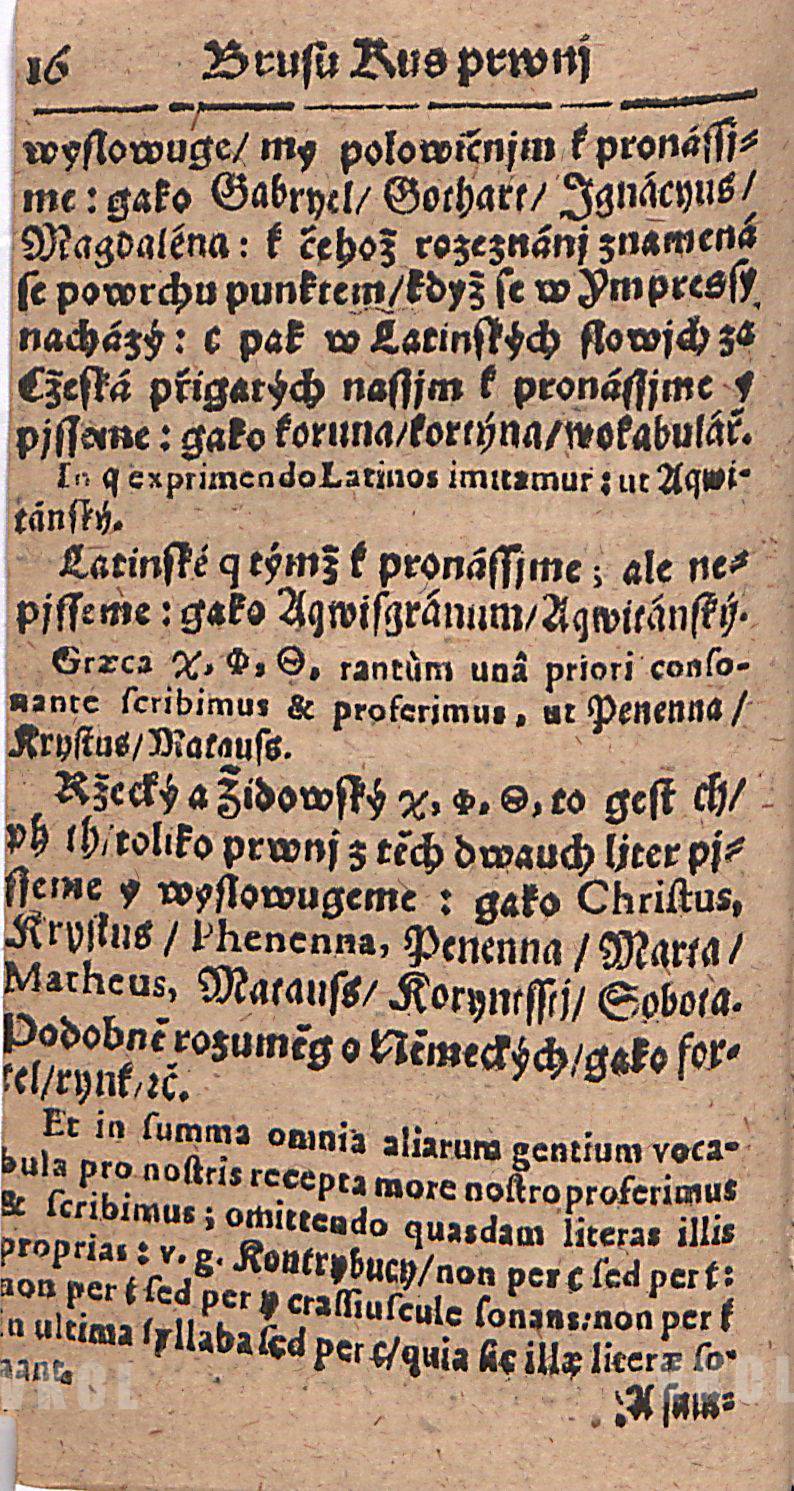 16 Brusu Kus prwnj
wyslowuge/ my polowičnjm k pronássj⸗
me: gako Gabryel/ Gothart/ Jgnácyus/
Magdaléna: k čehož rozeznánj znamená
se powrchu punktem/když se w Ympressy
nacházý: c pak w Latinských slowjch za
Cžeská přigatých nassjm k pronássjme y
pjsseme: gako koruna/kortýna/wokabulář.
In q exprimendo Latinos imitamur: ut Aqwi-
tánský.
Latinské q týmž k pronássjme; ale ne⸗
pjsseme: gako Aqwisgránum/Aqwitánský.
Græca χ, Φ, Θ, tantùm unâ priori conso-
nante scribimus & proferimus, ut Penenna/
Krystus/Matauss.
Ržecký a Židowský χ, Φ, Θ, to gest ch/
ph th/toliko prwnj z těch dwauch liter pj⸗
sseme y wyslowugeme: gako Christus,
Krystus/ Phenenna, Penenna/ Marta/
Matheus, Matauss/ Koryntsstj/ Sobota.
Podobně rozuměg o Německých/gako for-
tel/rynk/ꝛč.
Et in summa omnia aliarum gentium voca-
bula pro nostris recepta more nostro proferimus
& scribimus; omittendo quasdam literas illis
proprias: v. g. Kontrybucy/non per c sed per k:
non per t sed per y crassiuscule sonans: non per t
in ultima syllaba sed per c/quia sic illæ literæ so-
nant.
A sum⸗
VKOL